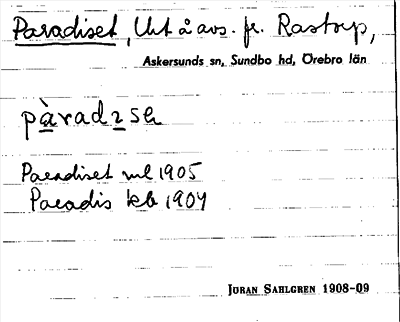 Paradiset, Utt å avs. fr. Rastorp,
Askersunds sn, Sundbo hd, Örebro län
pàradısɘ
Paradiset ml 1905
Paradis kb 1904
JÖRAN SAHLGREN 1908-09